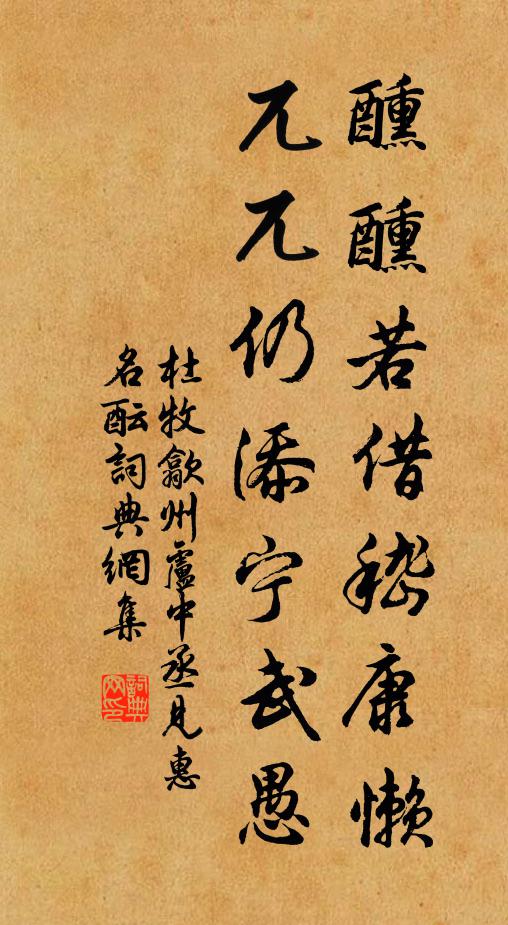 醺醺若借嵇康懶
兀兀仍添宁武愚
杜牧歙州盧中丞見惠
名酝詞典網集
詞典
网印